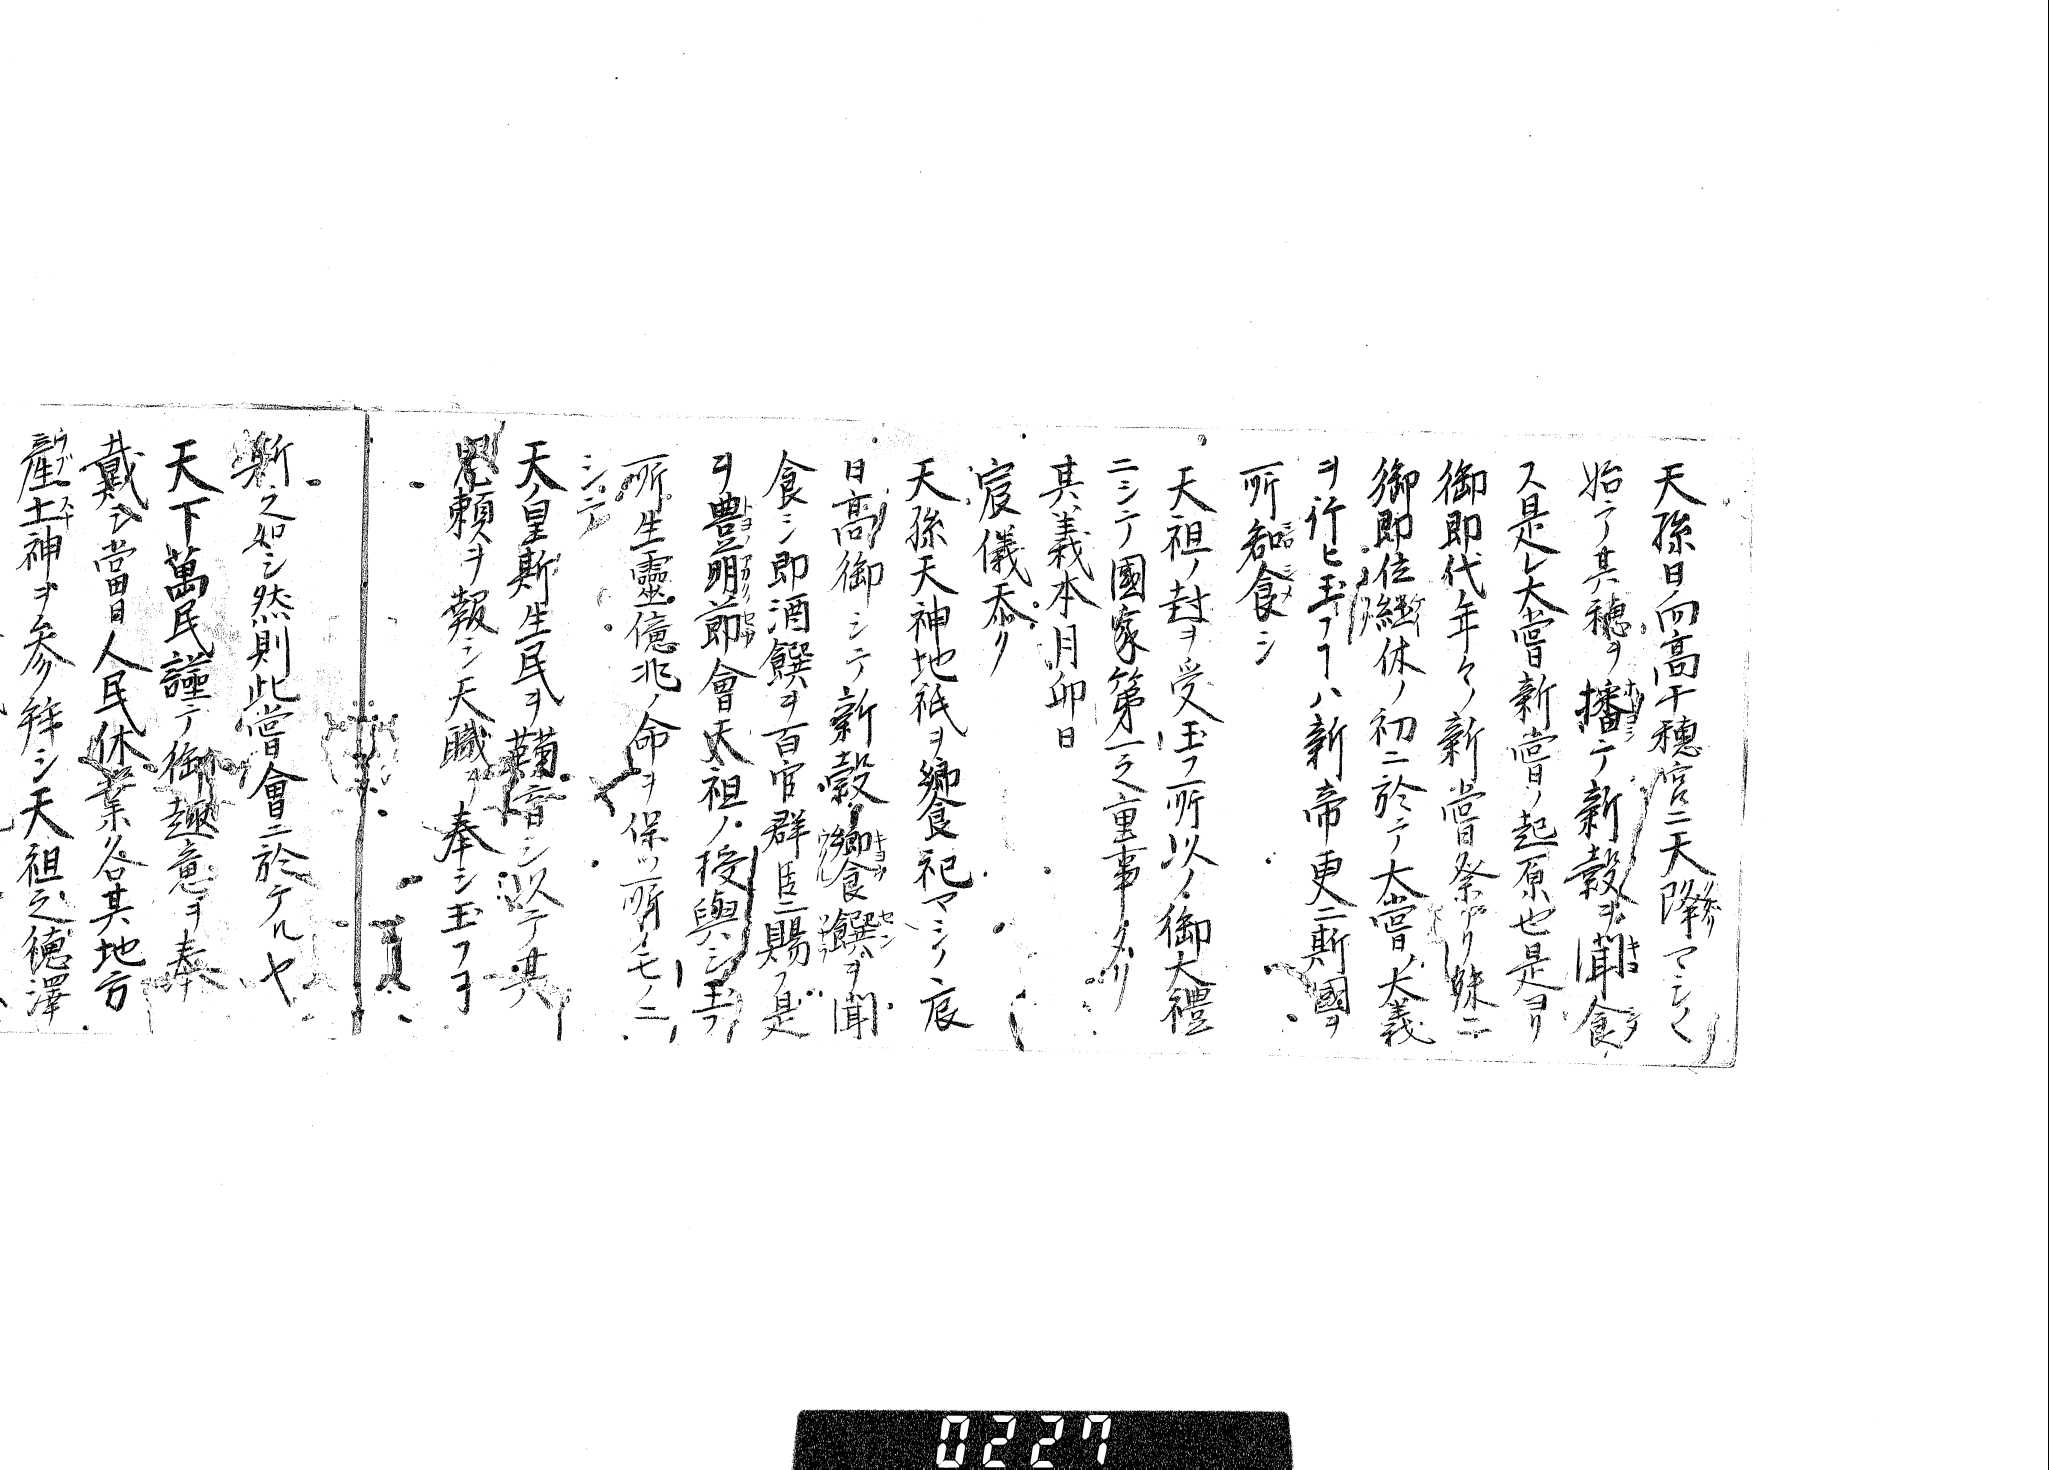 天孫日ノ向高千穂宮ニ天降マシ〳〵
始テ其穂ヲ播テ新穀ヲ聞食
ス是レ大嘗新嘗ノ起原也是ヨリ
御即代年々ノ新嘗祭アリ殊ニ
御即位継体ノ初ニ於テ大嘗ノ大義
ヲ行ヒ玉フヿハ新帝更ニ斯國ヲ
所知食シ
天祖ノ封ヲ受玉フ所以ノ御大禮
ニシテ國家第一之重事タリ
其義本月卯日
宸儀忝ク
天孫天神地祇ヲ饗祀マシ〳〵辰
日高御シテ新穀ノ饗饌ヲ聞
食シ即酒饌ヲ百官群臣ニ賜フ是
ヲ豊明節會天祖ノ授與シ玉フ
所生靈億兆ノ命ヲ保ツ所ノモノニ
シテ
天皇斯生民ヲ鞠育シ以テ其
恩頼ヲ報シ天職ヲ奉シ玉フヿ
斯之如シ然則此嘗會ニ於ケルヤ
天下萬民謹テ御趣意ヲ奉
戴シ當日人民休業各其地方
産土神ヲ参拝シ天祖之徳澤
0227